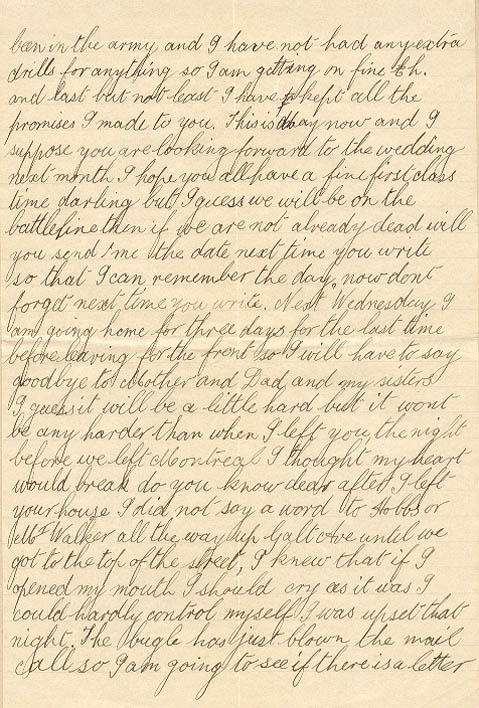 been in the army and I have not had any extra
drills for anything so I am getting on fine Eh.
and last but not least I have kept all the
promises I made to you. This is May now and I
suppose you are looking forward to the wedding
next month I hope you all have a fine first class
time darling but I guess we will be on the
battlefine then if we are not already dead will
you send me the date next time you write
so that I can remember the day, now dont
forget next time you write. Next Wednesday I
am going home for three days for the last time
before leaving for the front so I will have to say
goodbye to Mother and Dad, and my sisters
I guess it will be a little hard but it wont
be any harder than when I left you, the night
before we left Montreal I thought my heart
would break do you know dear after I left
your house I did not say a word to Hobbs or
Mr Walker all the way up Galt Ave until we
got to the top of the street, I knew that if I
opened my mouth I should cry as it was I
could hardly control myself I was upset that
night. The bugle has just blown the mail
call so I am going to see if there is a letter